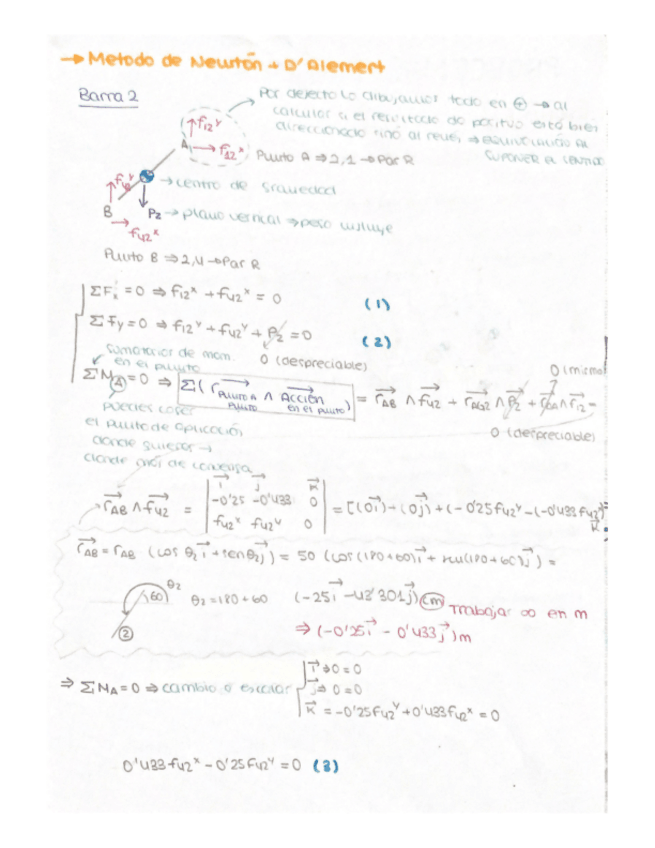 → Metodo de Newton + D'Alemert
Barra 2
Por defecto lo dibujamos todo en ⊕ → al
calcular si el resultado da positivo está bien
direccionado sinó al revés, ⇒ equivocación al
suponer el sentido
f12^y
A
f12^x
Punto A ⇒ 2,1 → Par R
f42^y
→ centro de gravedad
B
P2 → plano vertical ⇒ peso influye
f42^x
Punto B ⇒ 2,4 → Par R
ΣFx = 0 ⇒ f12^x + f42^x = 0 (1)
ΣFy = 0 ⇒ f12^y + f42^y + P2 = 0 (2)
0 (despreciable)
Sumatorior de mom.
en el punto
0 (mismo
ΣMA = 0 ⇒ Σ( r Punto A Punto ∧ Acción en el punto) = rAB ∧ f42 + rAG2 ∧ P2 + ∧ r12 =
0 (despreciable)
puedes coger
el punto de aplicación
donde quieras →
donde más te convenga
i j k
rAB ∧ f42 = | -0'25 -0'433 0 | = [(0i) - (0j) + (-0'25f42^y - (-0'433f42^x)
f42^x f42^y 0
k
rAB = rAB (cos θ2 i + sen θ2 j) = 50 (cos(180+60)i + sen(180+60)j) =
60 θ2 θ2 = 180 + 60 (-25i - 43'301j) cm Trabajar ∞ en m
2 ⇒ (-0'25i - 0'433j) m
i ⇒ 0 = 0
⇒ ΣMA = 0 ⇒ cambio a escalar j ⇒ 0 = 0
k = -0'25f42^y + 0'433f42^x = 0
0'433f42^x - 0'25f42^y = 0 (3)